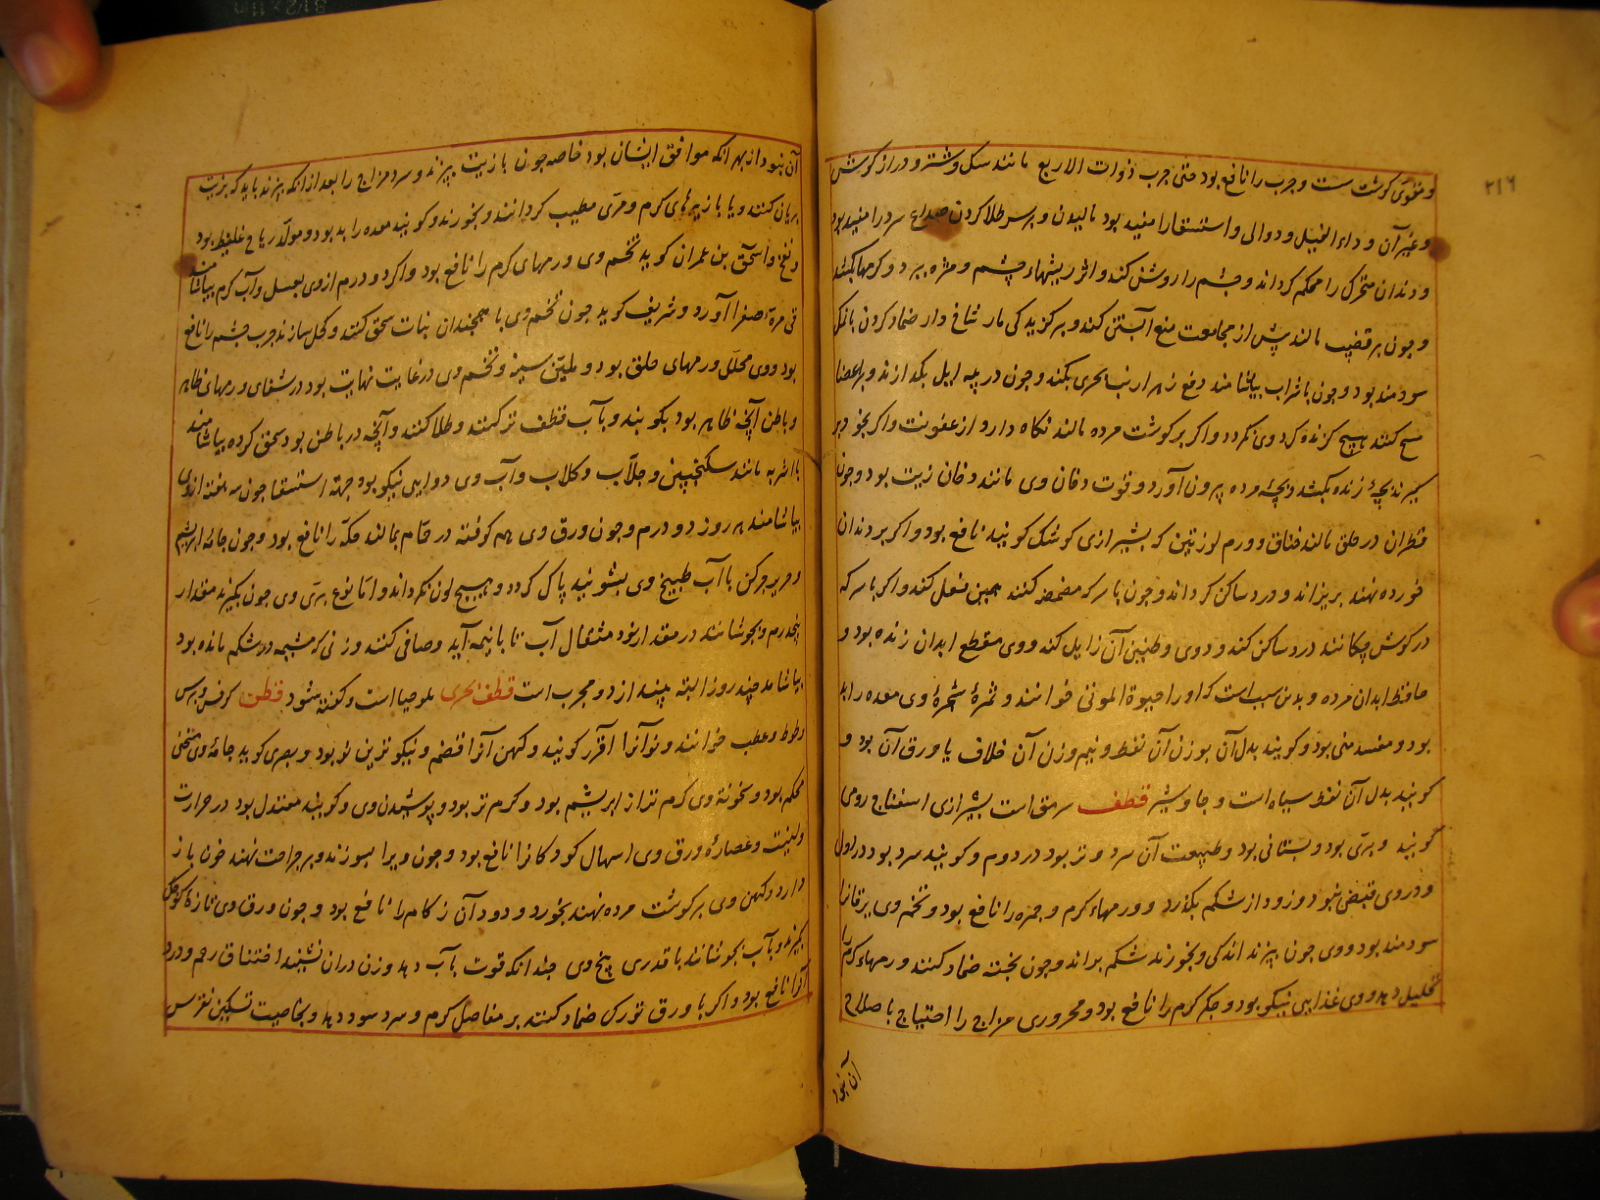 ۲۱۶
و مقوی گوشت است و جرب را نافع بود حتی جرب ذوات الاربع مانند سک و شتر و دراز کوش
و غیر آن و داء الفیل و دوالی و استسقا را مفید بود مالیدن و بر سر طلا کردن صداع سرد را مفید بود
و دندان متحرک را محکم کرداند و چشم را روشن کند و اثر ریشهاء چشم و مژه ببرد و کرمها بکشد
و چون بر قضیب مالند پش از مجامعت منع آبستن کند و بر کزیدکی مار شاخ دار ضماد کردن بانمک
سودمند بود و چون باشراب بیاشامند دفع زهر ارنب بحری بکند و چون در پیه ایل بکدازند و بر اعضا
مسح کنند هیچ کزنده کرد وی نکردد و اگر بر کوشت مرده مالند نکاه دارد از عفونت و اکر بخود بر
کیرند بچهٔ زنده بکشد و بچهٔ مرده بیرون آورد و قوت دخان وی مانند دخان زیت بود و چون
قطران در حلق مالند خناق و ورم لوزتین که بشیرازی کوشک کویند نافع بود و اکر بر دندان
خورده نهند بریزاند و درد ساکن کرداند و چون با سرکه مضمضه کنند همین فعل کند و اکر با سرکه
در کوش چکانند درد ساکن کند و دوی و طنین آن زایل کند و وی مقطع ابدان زنده بود و
حافظ ابدان مرده و بدین سبب است که او را حیوة الموتی خوانند و ثمرهٔ شجرهٔ وی معده را بد
بود و مفسد منی بود و کویند بدل آن بوزن آن نفط و نیم وزن آن خلاف یا ورق آن بود و
کویند بدل آن نفط سیاه است و جاوشیر قطف سرمق است بشیرازی اسفناج رومی
کویند و برّی بود و بستانی بود و طبیعت آن سرد و تر بود در دوم و کویند سرد بود در اول
و در وی قبضی نبود و زود از شکم بکذرد و ورمهاء کرم و جمره را نافع بود و تخم وی یرقان را
سودمند بود و وی چون بپزند اندکی و بخورند شکم براند و چون بخته ضماد کنند ورمهاء کرم را
تحلیل دهد و وی غذایی نیکو بود و جکر کرم را نافع بود و محروری مزاج را احتیاج باصلاح
آن نبود
آن نبود از بهر انکه موافق ایشان بود خاصه چون با زیت بپزند و سرد مزاج را بعد از انکه بپزند باید که بزیت
بریان کنند و یا با زیرهای کرم و مرّی مطیب کردانند و بخورند و کویند معده را بد بود و مولّد ریاح غلیظ بود
و نفخ و اسحق بن عمران کوید تخم وی ورمهای کرم را نافع بود و اکر دو درم از وی بعسل و آب کرم بیاشامند
قی مرهٔ صفرا آورد و شریف کوید چون تخم وی با همچندان نبات سحق کنند و کحل سازند جرب چشم را نافع
بود و وی محلل ورمهای حلق بود و ملیّن سینه و تخم وی در غایت نهایت بود در شفای ورمهای ظاهر
و باطن آنچه ظاهر بود بکوبند و بآب قطف تر کنند و طلا کنند و آنچه در باطن بود سحق کرده بیاشامند
با اشربه مانند سکنجبین و جلّاب و کلاب و آب وی دوایی نیکو بود جهة استسقا چون سه هفته ازوی
بیاشامند هر روز دو درم و چون ورق وی هم کوفته در حمام بمالند حکّه را نافع بود و چون جامهٔ ابریشم
و حریر چرکن با آب طبیخ وی بشویند پاک کردد و هیچ لون نکرداند و امّا نوع برّی وی چون بکیرند مقدار
پنجدرم و بجوشانند در مقدار نود مثقال آب تا بانیمه آید و صافی کنند و زنی که مشیمه در شکم مانده بود
بیاشامد چند روز البته بیندازد و مجرب است قطف بحری ملوخیا است و کفته شود قطن کرفس و برس
و طوط و عطب خوانند و نو آنرا اقرر کویند و کهن آنرا قضم و نیکوترین نو بود و بصری کوید جامهٔ وی مسخن
محکم بود و سخونة وی کرم تر از ابریشم بود و کرم تر بود و پوشیدن وی و کویند معتدل بود در حرارت
و لینت و عصارهٔ ورق وی اسهال کودکانرا نافع بود و چون ویرا بسوزند و بر جراحت نهند خون باز
دارد و کهن وی بر کوشت مرده نهند بخورد و دود آن زکام را نافع بود و چون ورق وی تازه کوچک
بکیرند و بآب بجوشانند با قدری بیخ وی چندانکه قوت بآب دهد و زن دران نشیند اختناق رحم و درد
آنرا نافع بود و اکر با ورق تورک ضماد کنند بر مفاصل کرم و سرد سود دهد و بخاصیت تسکین نقرس